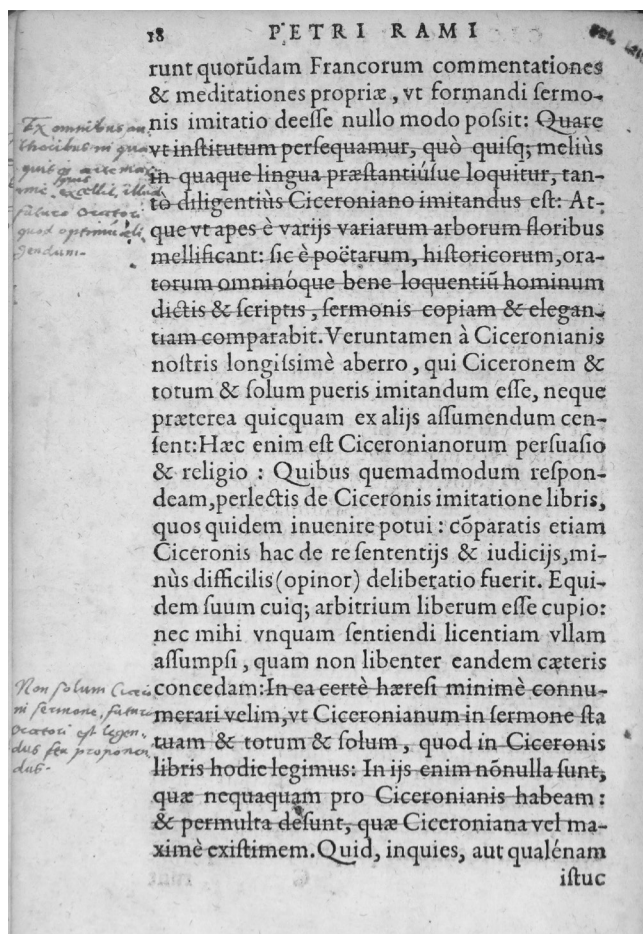 18 PETRI RAMI
runt quorũdam Francorum commentationes
& meditationes propriæ, vt formandi sermo-
nis imitatio deesse nullo modo possit: Quare
vt institutum persequamur, quò quisq; meliùs
in quaque lingua præstantiúsue loquitur, tan-
tò diligentiùs Ciceroniano imitandus est: At-
que vt apes è varijs variarum arborum floribus
mellificant: sic è poëtarum, historicorum, ora-
torum omninóque bene loquentiũ hominum
dictis & scriptis, sermonis copiam & elegan-
tiam comparabit. Veruntamen à Ciceronianis
nostris longissimè aberro, qui Ciceronem &
totum & solum pueris imitandum esse, neque
præterea quicquam ex alijs assumendum cen-
sent: Hæc enim est Ciceronianorum persuasio
& religio : Quibus quemadmodum respon-
deam, perlectis de Ciceronis imitatione libris,
quos quidem inuenire potui : cõparatis etiam
Ciceronis hac de re sententijs & iudicijs, mi-
nùs difficilis (opinor) deliberatio fuerit. Equi-
dem suum cuiq; arbitrium liberum esse cupio:
nec mihi vnquam sentiendi licentiam vllam
assumpsi, quam non libenter eandem cæteris
concedam: In ea certè hæresi minimè connu-
merari velim, vt Ciceronianum in sermone sta
tuam & totum & solum, quod in Ciceronis
libris hodie legimus: In ijs enim nõnulla sunt,
quæ nequaquam pro Ciceronianis habeam :
& permulta desunt, quæ Ciceroniana vel ma-
ximè existimem. Quid, inquies, aut qualénam
istuc
Ex omnibus au
thoribus in qua
quis arte
excellit, illud
futuro oratori
quod optimũ
gendum.
Non solum Cicero
ni sermone, futuro
oratori est legen-
dus seu proponen
dus.